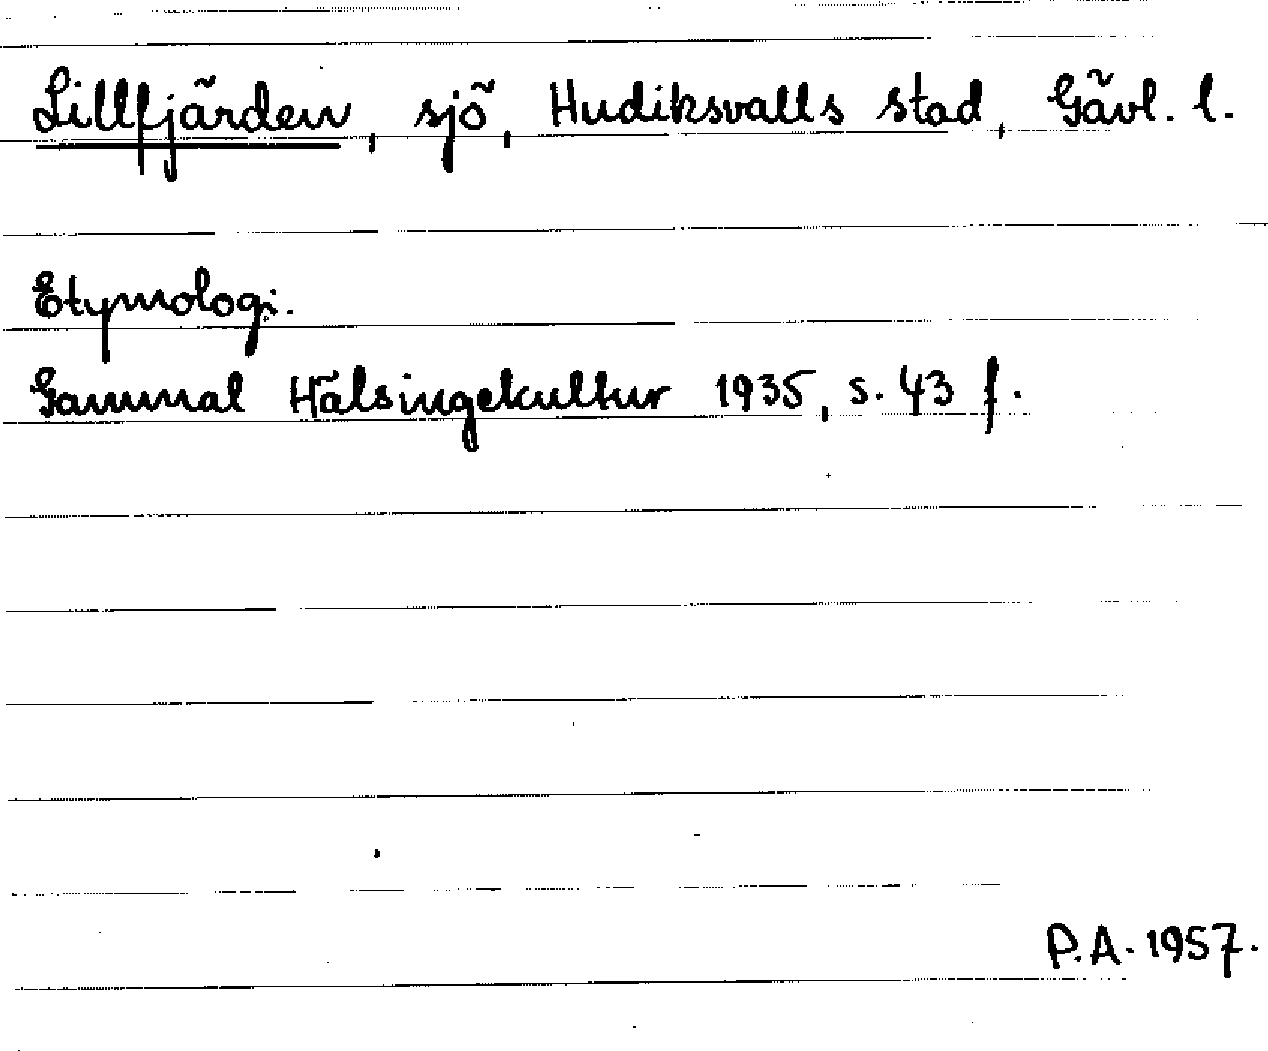 Lillfjärden, sjö, Hudiksvalls stad, Gävl. l.
Etymologi.
Gammal Hälsingekultur 1935, s. 43 f.
P.A. 1957.